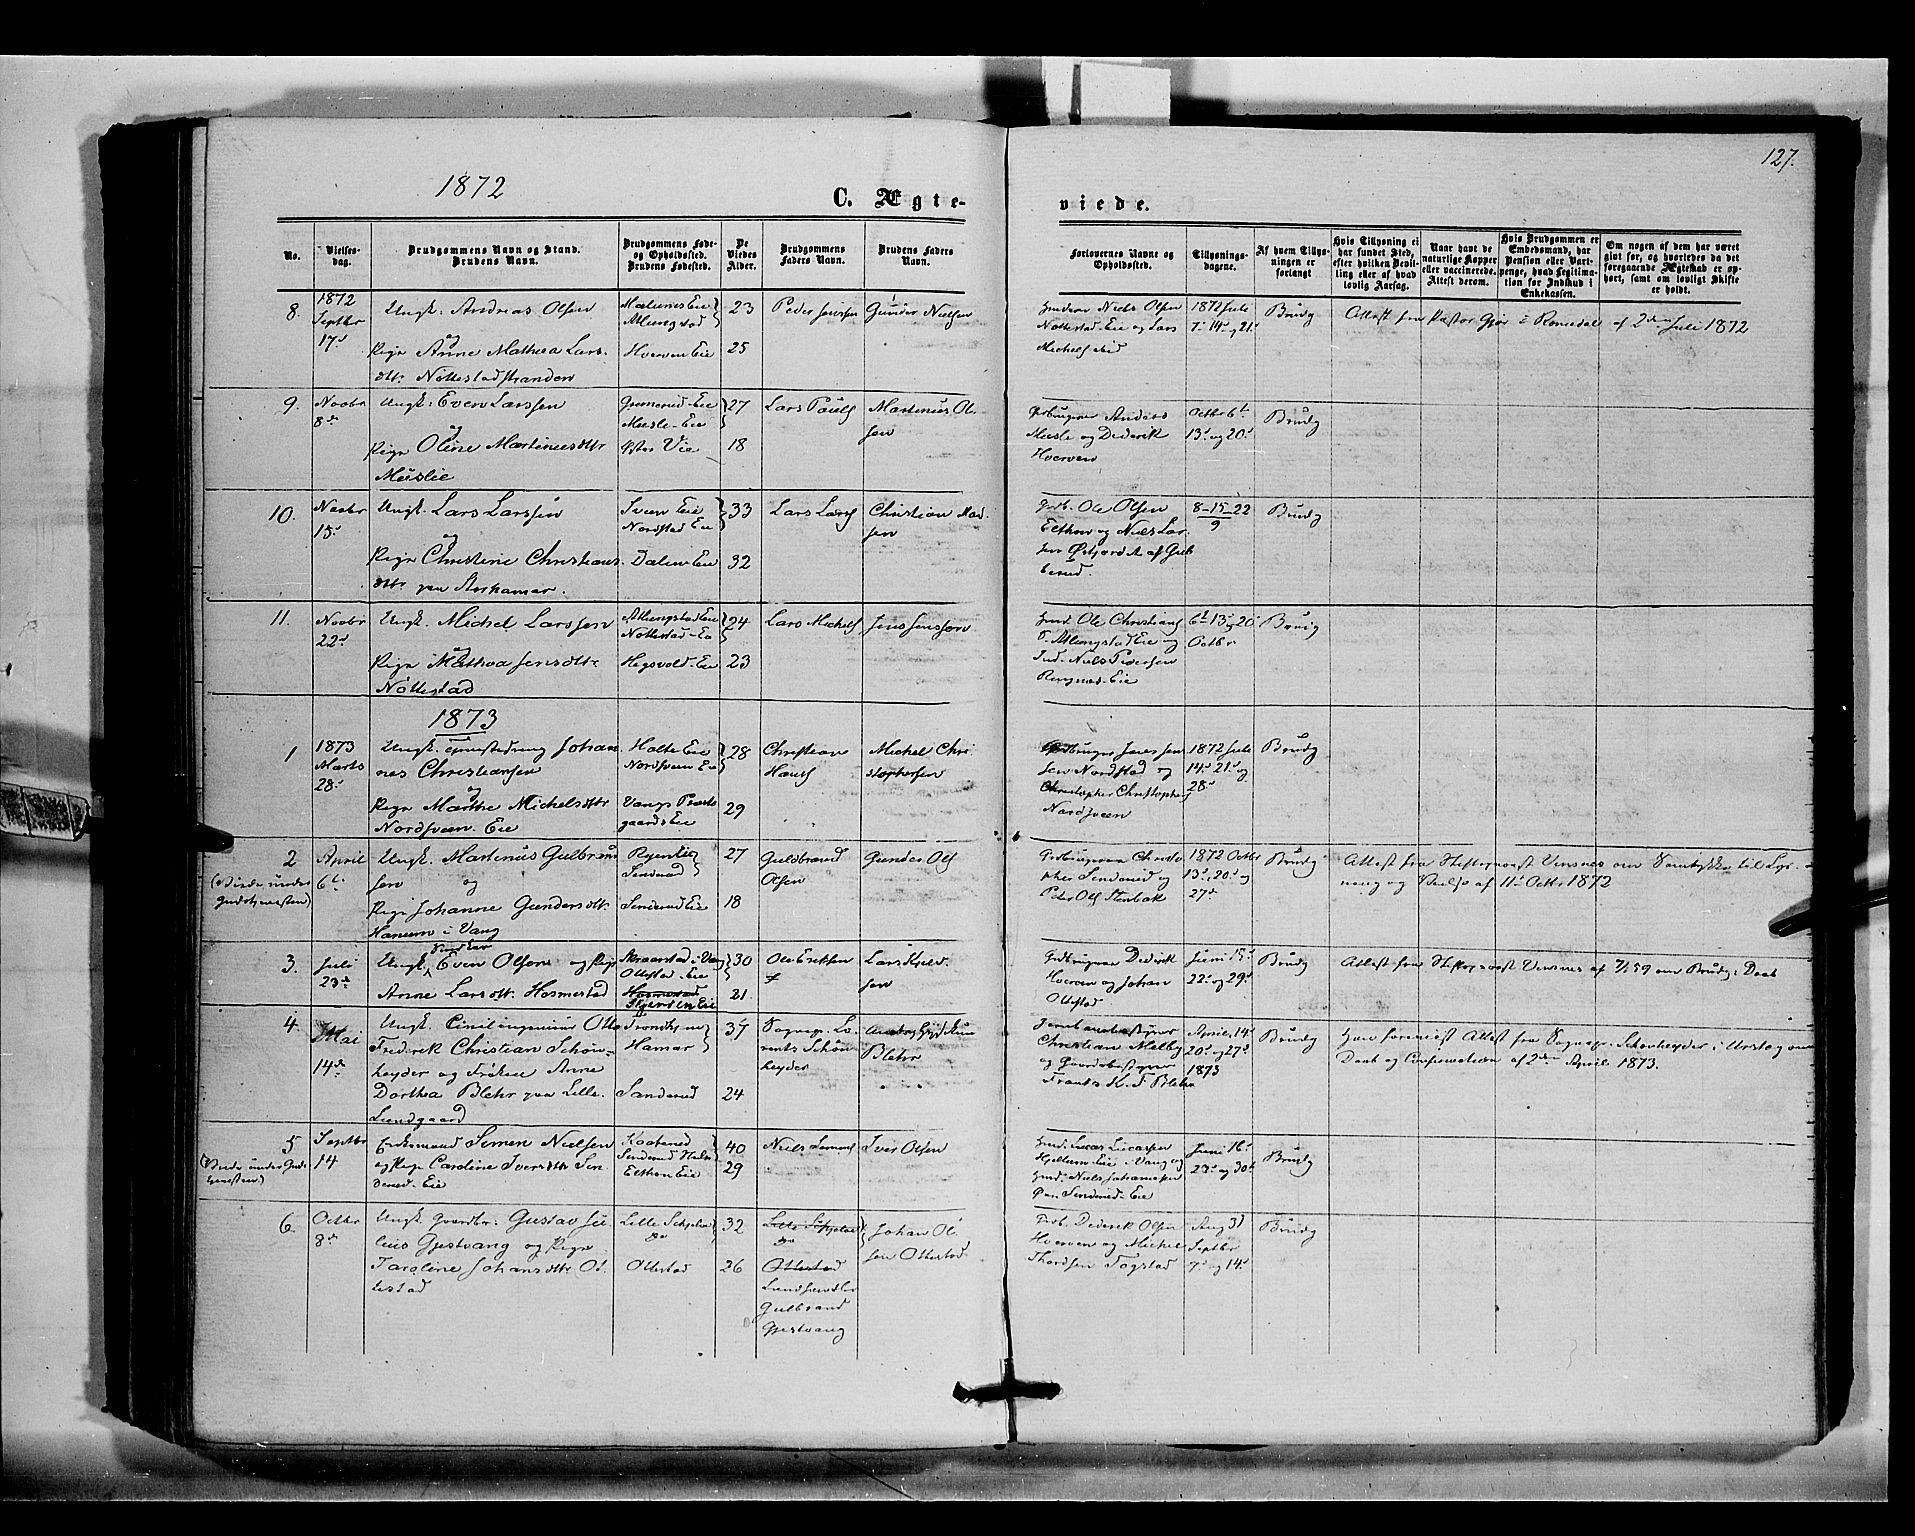 127.
1872
C. Ægte-
viede.
No.
Vielses-
dag.
Brudgommens Navn og Stand.
Brudens Navn.
Brudgommens Føde-
og Opholdssted.
Brudens Fødested.
De
Viedes
Alder.
Brudgommens
Faders Navn.
Brudens Faders
Navn.
Forlovernes Navne og
Opholdssted.
Tillysnings-
dagene.
Af hvem Tillys-
ningen er
forlangt
Hvis Tillysning ei
har fundet Sted,
efter hvilken Bevil-
ling eller af hvad
lovlig Aarsag.
Naar havt de
naturlige Kopper
eller vaccinerede.
Attest derom.
Hvis Brudgommen er
Embedsmand, har
Pension eller Vart-
penge, hvad Legitima-
tion for Indskud i
Enkekassen.
Om nogen af dem har været
givt før, og hvorledes da det
foregaaende Ægteskab er op-
hørt, samt om lovligt Skifte
er holdt.
8.
1872
Septbr
17d
Ungk. Andreas Olsen
og
Pige Anne Mathea Lars-
dtr. Nøttestadstranden
Mælumes Eie
Atlungstad
Hverven Eie
23
25
Peder Jenssen
Gunder Nielsen
Niels Olsen
Nøttestad-Eie og Lars
1872 Juli
7d 14d og 21d
Brudg
Attest fra Pastor Gjør i Romedal af 2den Juli 1872
9.
Novbr
8de
Ungk. Even Larssen
og
Pige Oline Martinusdtr
Muslie
Muslie-Eie
Vie
27
18
Lars Pauls
Martinus Ol-
sen
Gdbruger Anders
Musle og Dederik
Hverven
Octbr 6te
13d og 20d
Brudg
10.
Novbr
15d
Ungk. Lars Larssen
og
Pige Christine Christians-
dtr paa Storhamar.
Sveen Eie
Nordstad Eie
Dalen-Eie
33
32
Lars Lars
Christian Mad-
sen
Gdb. Ole Olsen
Elthon og Niels Lar-
sen
8-15-22
9
Brudg
11.
Novbr
22d
Ungk. Michel Larssen
og
Pige Mathea Jensdtr
Nøttestad
Atlungstad Eie
Nøttestad-Eie
Hegsvold-Eie
24
23
Lars Michels
Jens Jenssen
Ole Christians
Atlungstad Eie og
Niels Pedersen
Ringnes-Eie
6te 13d og 20d
Octbr
Brudg
1873
1
1873
Marts
28d
Ungk. Johan-
nes Christiansen
og
Pige Marthe Michelsdtr
Nordsveen Eie
Holte Eie
Nordsveen Eie
Vangs Præste-
gaards Eie
28
29
Christian
Hans
Michel Chri-
stophersen
Gdbruger Jens Jens-
sen Nordstad og
Christopher Christophers
Nordsveen
1872 Juli
14d 21d og
28d
Brudg
2
(Viede under
Gudstjenesten)
April
6te
Ungk. Martinus Gulbrand-
sen
og
Pige Johanne Gundersdtr.
Hanum i Vang
Ryen Eie
Sinderud
Sinderud Eie
27
18
Guldbrand
Olsen
Gunder Ols
Gdbruger Christo-
pher Sinderud og
Peter Ols Stenbak
1872 Octbr
13d, 20d og
27d
Brudg
Attest fra Stiftsprovst Vensnes om Samtykke til Lys-
ning og Vielse af 11d Octbr 1872
3.
Juli
23d
Ungk. Even Olsen og Pige
Anne Larsdtr. Hosmestad
Skraarstad i Vang
Ottestad-Eie
Hosmestad
30
21.
Ole Eriksen
Lars Kield-
sen
Gdbruger Dederik
Hverven og Johan
Ottestad
Juni 15d
22d og 29d
Brudg
Attest fra Stiftsprovst Vensnes af 7/1 59 om Brudg. Daab
4.
Mai
14de
Ungk. Civilingeniør Otto
Frederik Christian Schøn-
heyder og Frøken Anne
Dorthea Blehr paa Lille-
Lundgaard
Trondhjem
Hamar
Sanderud
37
24
Sognepr. Lo-
rents Schøn-
heyder
Blehr
Jernbanebestyrer
Christian Melby
og Gaardsbestyrer
Frants K. F. Blehr
April 14d
20d og 27d
1873
Brudg
Har foreviist Attest fra Sognepr. Schønheyder i Urskog om
Daab og Confirmation af 2den April 1873.
5
(Viede under Guds-
tjenesten)
Septbr
14
Enkemand Simen Nielsen
og Pige Caroline Iversdtr Sin-
derud-Eie
Kaaterud
Elthon Eie
40
29
Niels Simens
Iver Olsen
Lucas Lucassen
Hjellum Eie i Vang og
Niels Johannesen
Sinderud-Eie
Juni 16d
23d og 30d
Brudg
6.
Octbr
8de
Ungk. Gaardbr: Gustav Ju-
lius Gjestvang og Pige
Karoline Johansdtr Ot-
testad
Lille Schjelve
Do
Ottestad
32
26
Lille Schjelve
Do
Ottestad
Gulbrand
Gjestvang
Johan Ol-
sen Ottestad
Gdb. Dederik Olsen
Hverven og Michel
Thordsen Togstad
Aug 31
Septbr
7d og 14d
Brudg